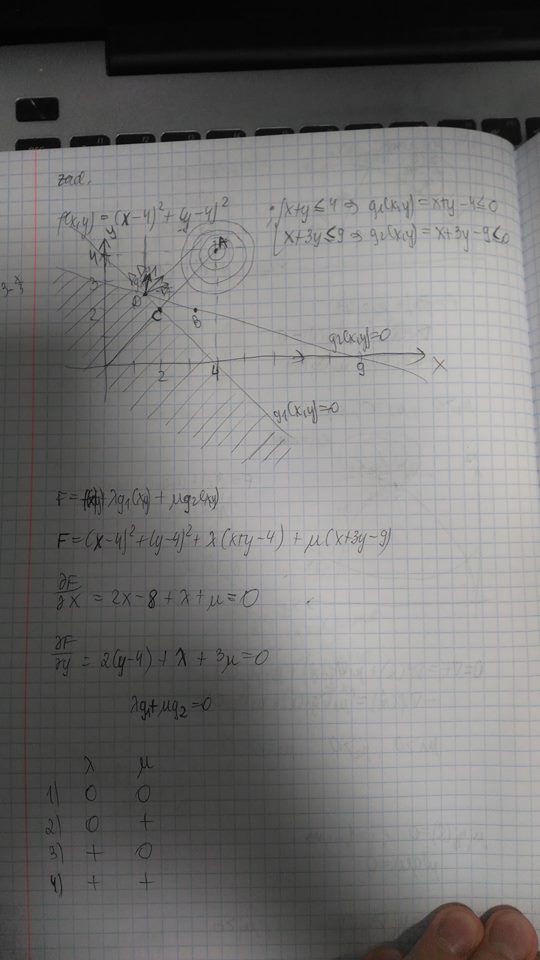 zad.
f(x,y) = (x-4)² + (y-4)²
{ x+y ≤ 4 ⇒ g₁(x,y) = x+y-4 ≤ 0
x+3y ≤ 9 ⇒ g₂(x,y) = x+3y-9 ≤ 0
y
A
4
3
3-x/3
D
2
C
B
g₂(x,y)=0
2
4
9
x
g₁(x,y)=0
F = f(x,y) + λg₁(x,y) + μg₂(x,y)
F = (x-4)² + (y-4)² + λ(x+y-4) + μ(x+3y-9)
∂F/∂x = 2x-8+λ+μ=0
∂F/∂y = 2(y-4)+λ+3μ=0
λg₁+μg₂=0
λ μ
1) 0 0
2) 0 +
3) + 0
4) + +